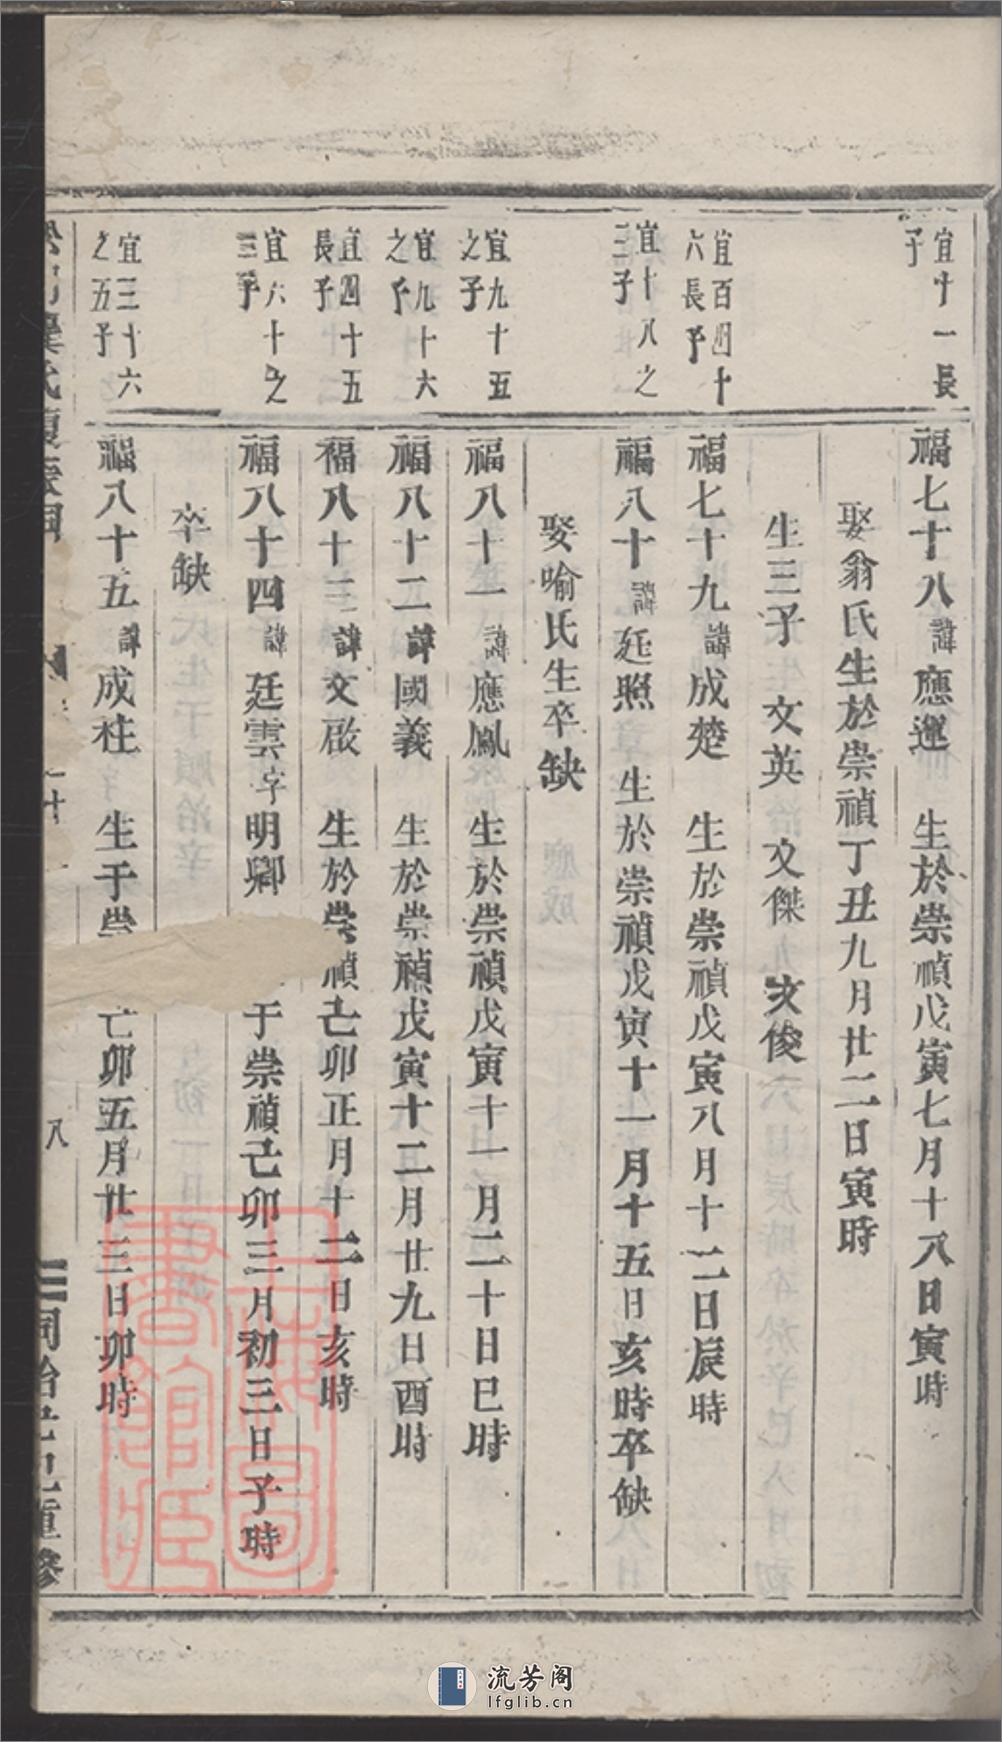 宜十一長
子
福七十八諱應運 生於崇禎戊寅七月十八日寅時
娶翁氏生於崇禎丁丑九月廿二日寅時
生三子 文英 文傑 文俊
宜百四十
六長子
福七十九諱成楚 生於崇禎戊寅八月十二日辰時
宜十八之
三子
福八十諱廷照 生於崇禎戊寅十一月十五日亥時卒缺
娶喻氏生卒缺
宜九十五
之子
福八十一諱應鳳 生於崇禎戊寅十一月二十日巳時
宜九十六
之子
福八十二諱國義 生於崇禎戊寅十二月廿九日酉時
宜四十五
長子
福八十三諱文啟 生於崇禎己卯正月十二日亥時
宜六十之
三子
福八十四諱廷雲字明卿 于崇禎己卯三月初三日子時
卒缺
宜三十六
之五子
福八十五諱成柱 生于崇 己卯五月廿三日卯時
八
同治己巳重修
上海圖書館藏
流芳阁
lfglib.cn